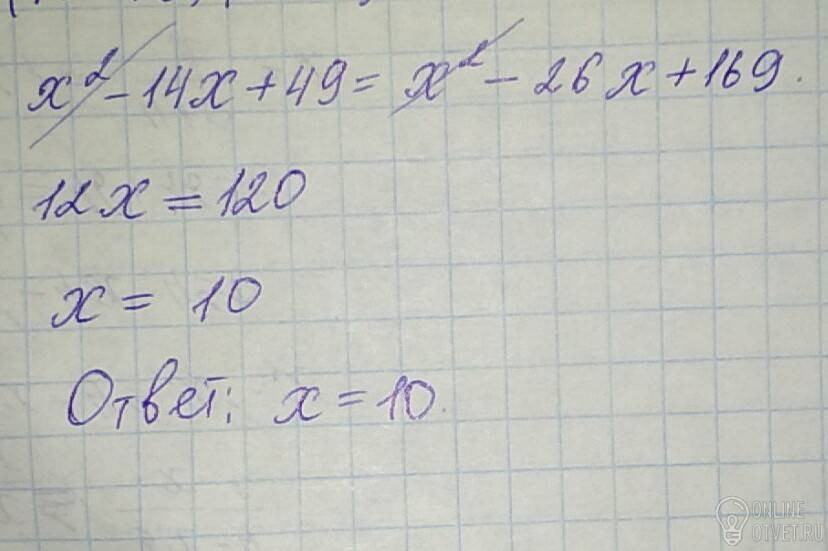 x² - 14x + 49 = x² - 26x + 169.
12x = 120
x = 10
Ответ: x = 10.
ONLINE
OTVET.RU